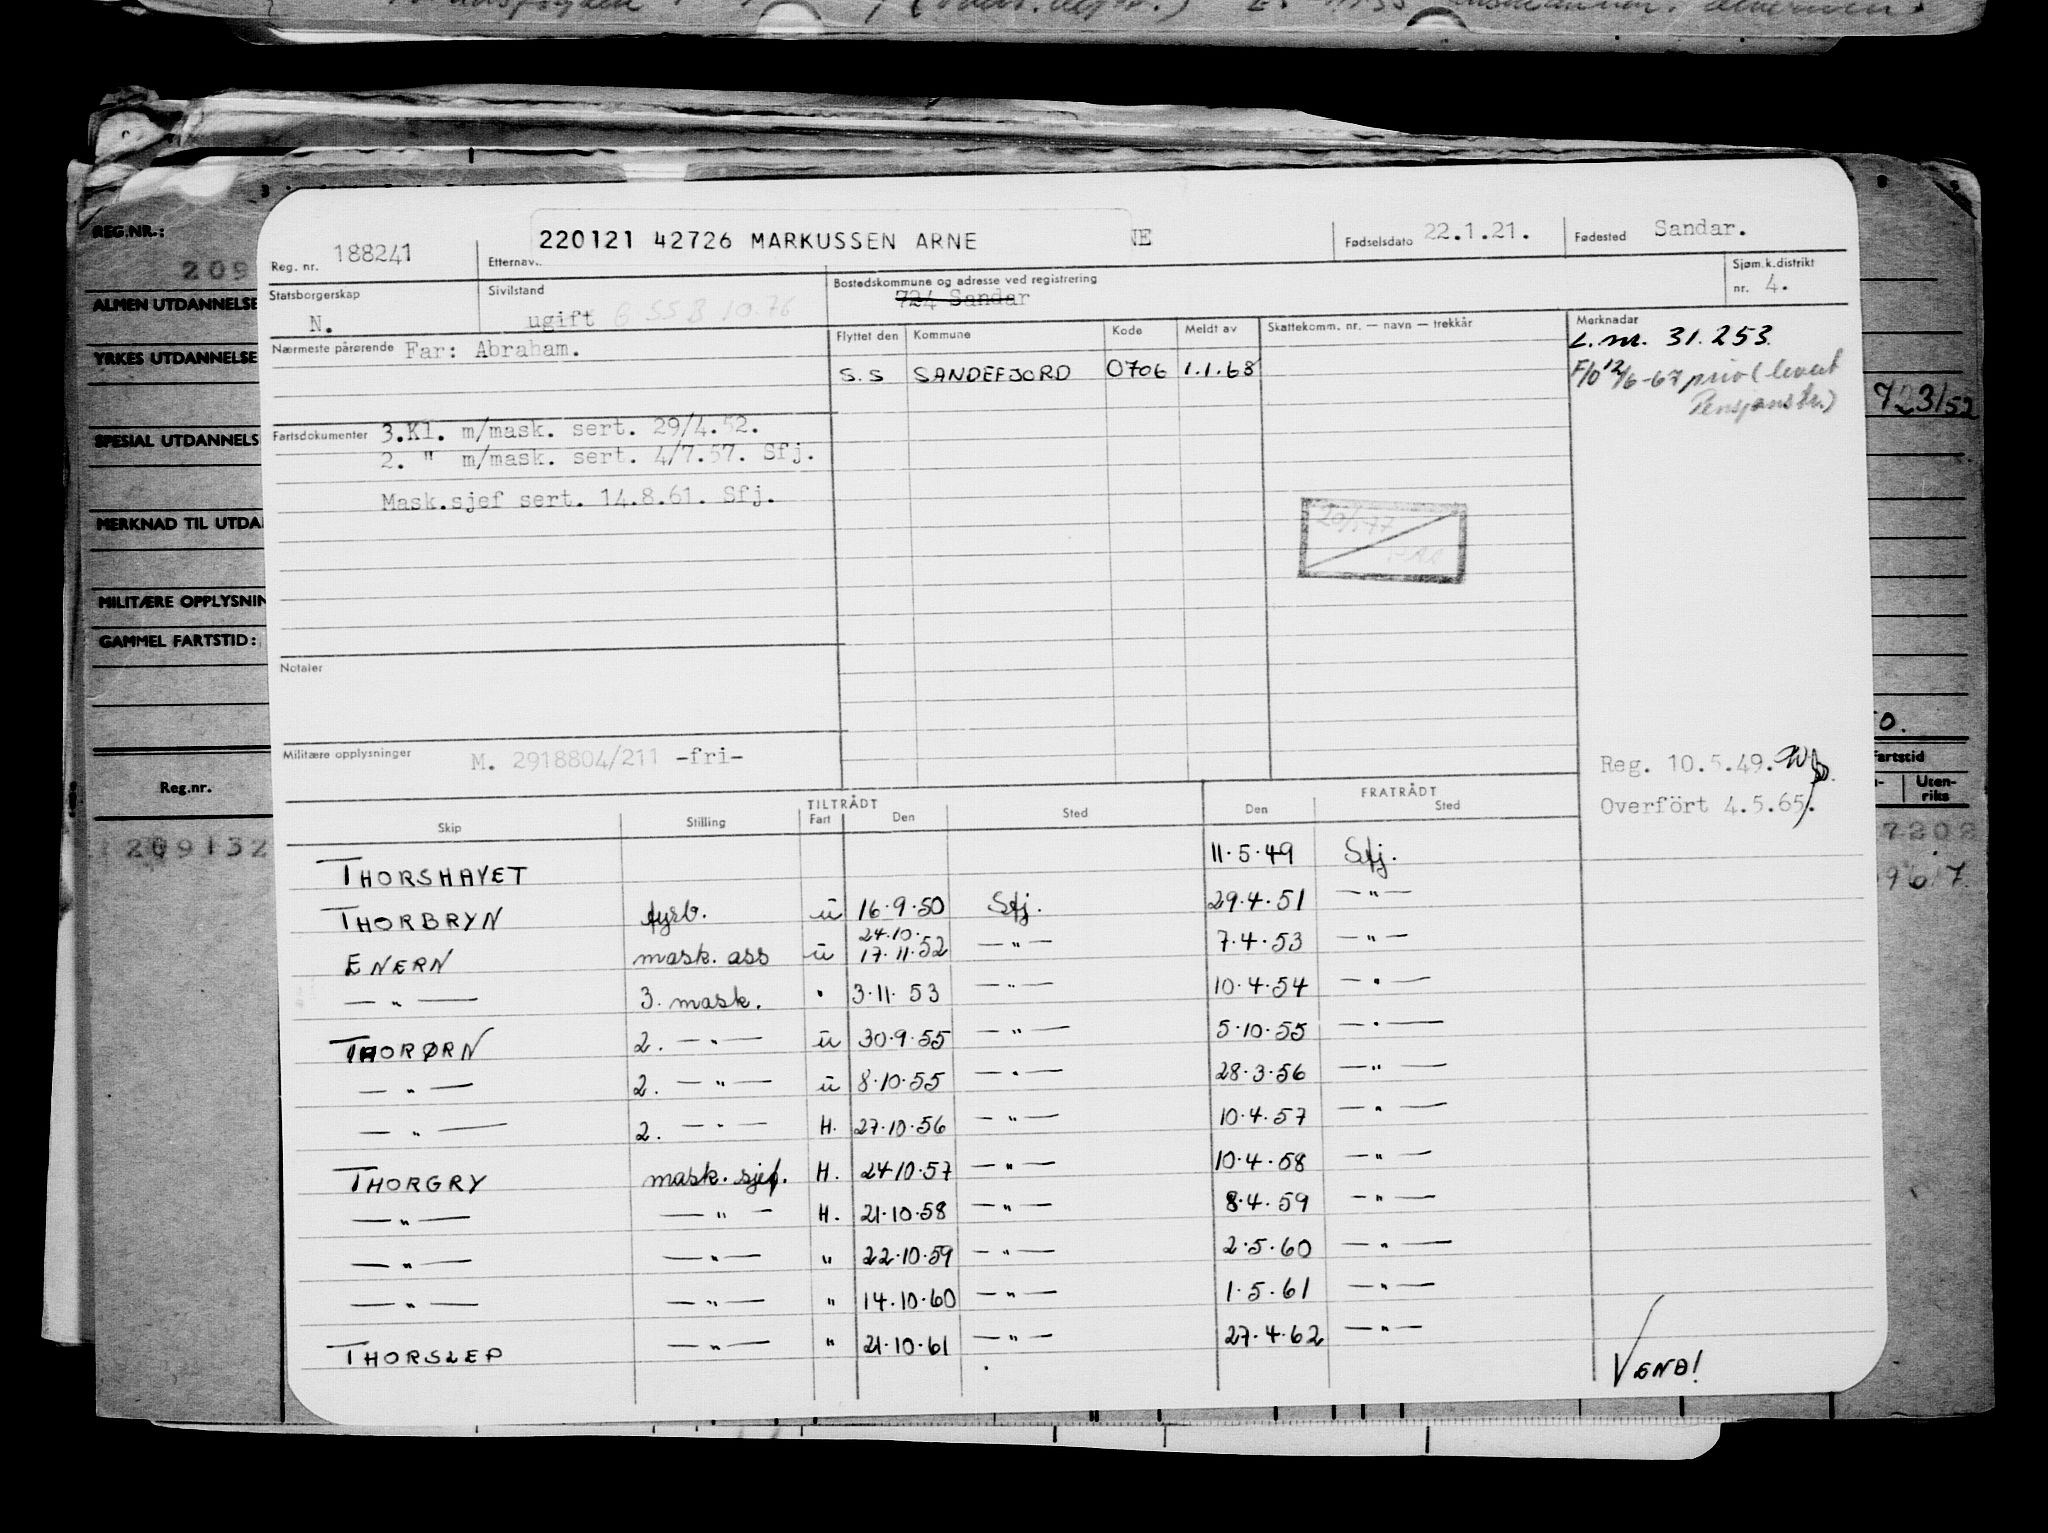 REG.NR.:
209
ALMEN UTDANNELSE
YRKES UTDANNELSE
SPESIAL UTDANNELS
MERKNAD TIL UTDA
MILITÆRE OPPLYSNIN
GAMMEL FARTSTID:
Reg.nr.
209132
Reg. nr. 188241
Etternav.. 220121 42726 MARKUSSEN ARNE NE
Fødselsdato 22.1.21.
Fødested Sandar.
Statsborgerskap N.
Sivilstand ugift
Bostedskommune og adresse ved registrering
724 Sandar
Sjøm.k.distrikt
nr. 4.
Nærmeste pårørende Far: Abraham.
Flyttet den Kommune Kode Meldt av Skattekomm. nr. — navn — trekkår
S.S SANDEFJORD 0706 1.1.68
Merknadar
L.m. 31.253.
F/O 12/6-67 priv (levert
Pensjonstr.)
723/52
Fartsdokumenter 3.Kl. m/mask. sert. 29/4.52.
2. " m/mask. sert. 4/7.57. Sfj.
Mask.sjef sert. 14.8.61. Sfj.
Notaler
Militære opplysninger M. 2918804/211 -fri-
Reg. 10.5.49.
Overfört 4.5.65.
0.
Fartstid
Uten-
riks
TILTRÅDT FRATRÅDT
Skip Stilling Fart Den Sted Den Sted
THORSHAVET 11.5.49 Sfj.
THORBRYN fyrb. u 16.9.50 Sfj. 29.4.51 — " —
24.10.
ENERN mask. ass u 17.11.52 — " — 7.4.53 — " —
— " — 3. mask. " 3.11.53 — " — 10.4.54 — " —
THORØRN 2. — " — u 30.9.55 — " — 5.10.55 — " —
— " — 2. — " — u 8.10.55 — " — 28.3.56 — " —
— " — 2. — " — H. 27.10.56 — " — 10.4.57 — " —
THORGRY mask. sjef. H. 24.10.57 — " — 10.4.58 — " —
— " — — " — H. 21.10.58 — " — 8.4.59 — " —
— " — — " — " 22.10.59 — " — 2.5.60 — " —
— " — — " — " 14.10.60 — " — 1.5.61 — " —
THORSLEP — " — " 21.10.61 — " — 27.4.62 — " —
VEND!